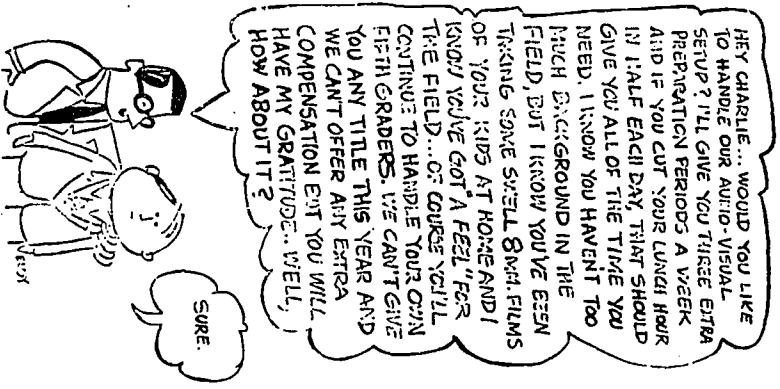 HEY CHARLIE... WOULD YOU LIKE
TO HANDLE OUR AUDIO-VISUAL
SETUP? I'LL GIVE YOU THREE EXTRA
PREPARATION PERIODS A WEEK
AND IF YOU CUT YOUR LUNCH HOUR
IN HALF EACH DAY, THAT SHOULD
GIVE YOU ALL OF THE TIME YOU
NEED. I KNOW YOU HAVEN'T TOO
MUCH BACKGROUND IN THE
FIELD, BUT I KNOW YOU'VE BEEN
TAKING SOME SWELL 8MM. FILMS
OF YOUR KIDS AT HOME AND I
KNOW YOU'VE GOT "A FEEL" FOR
THE FIELD... OF COURSE YOU'LL
CONTINUE TO HANDLE YOUR OWN
FIFTH GRADERS. WE CAN'T GIVE
YOU ANY TITLE THIS YEAR AND
WE CAN'T OFFER ANY EXTRA
COMPENSATION BUT YOU WILL
HAVE MY GRATITUDE.. WELL,
HOW ABOUT IT?
SURE.